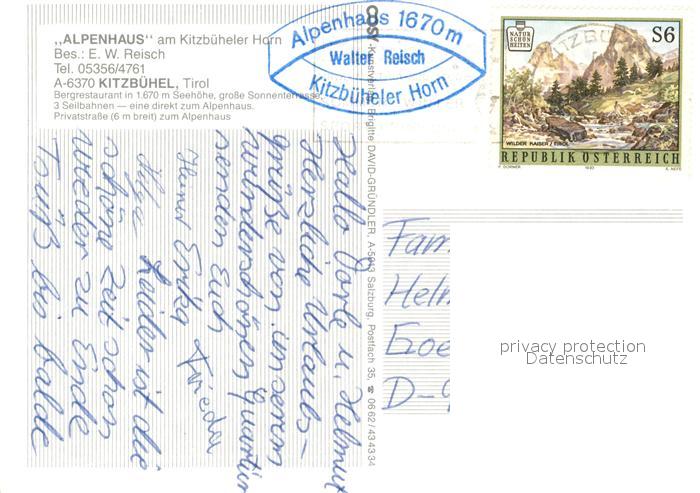 „ALPENHAUS" am Kitzbüheler Horn
Bes.: E. W. Reisch
Tel. 05356/4761
A-6370 KITZBÜHEL, Tirol
Bergrestaurant in 1.670 m Seehöhe, große Sonnenterrasse,
3 Seilbahnen — eine direkt zum Alpenhaus.
Privatstraße (6 m breit) zum Alpenhaus
Alpenhaus 1670 m
Walter Reisch
Kitzbüheler Horn
NATUR
SCHÖN
HEITEN
S6
WILDER KAISER / TIROL
REPUBLIK ÖSTERREICH
cosy-Kunstverlag Brigitte DAVID-GRÜNDLER, A-5013 Salzburg, Postfach 35, ☎ 0662/434334
Hallo Dorle u. Helmut
Herzliche Urlaubs-
grüße von unserem
wunderschönen Quartier
senden Euch
Erika Frieda
Helga Leider ist die
schöne Zeit schon
wieder zu Ende
Tschüß bis balde
Fam.
Helm
Goe
D-9
privacy protection
Datenschutz